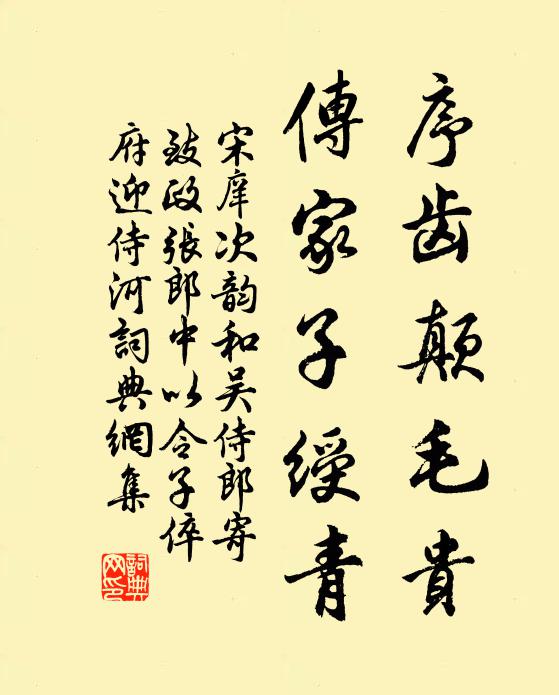 序齿颠毛贵
傳家子綬青
宋庠次韵和吴侍郎寄
致政張郎中以令子倅
府迎侍河詞典網集
詞典网印